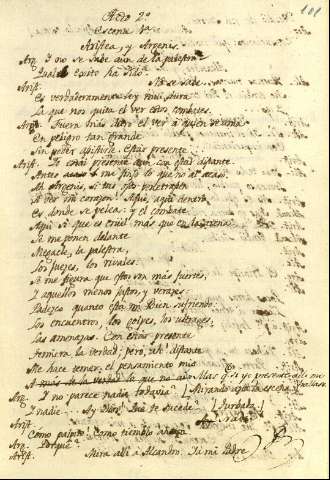 101
Acto 2º
Escena 1ª
Aristea, y Argenis.
Arg. Y no se sabe aun de la palestra
Qual exito ha sido?
Arist. No se sabe.
Es verdaderamente ley muy dura
La que nos quita el ver estos combates.
Arg. Fuera mas duro el ver à quien se ama
En peligro tan grande
Sin poder asistirle. Estás presente
Arist. Yo estoi presente aun con estar distante.
Antes me finjo lo que no es acaso.
Ah Argenis, si tus ojos penetrasen
A ver mi corazon! Aqui, aqui dentro
Es donde se pelea: y el combate
Aqui si que es cruel mas que en la arena
Se me ponen delante
Megacle, la palestra,
Los juezes, los rivales:
Se me figura que estos son mas fuertes,
Y aquellos menos justos, y veraces:
Padezco quanto està mi Bien sufriendo:
Los encuentros, los golpes, los ultrages,
Las amenazas. Con estàr presente
Temiera la verdad; pero, distante
Me hace temer, el pensamiento mio
la verdad lo que no
Arg. Y no parece nadie todavia [Mirando azia la escena
Arist. Y nadie.. Ay Dios! Arg. Qué te sucede? [Turbada
Arist.
Como palpito! Como tiemblo
Arg. Porque?
Arist. Mira alli à Alcandro.